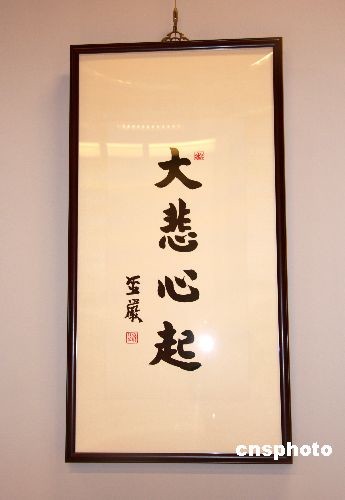 大悲心起
聖嚴
cnsphoto